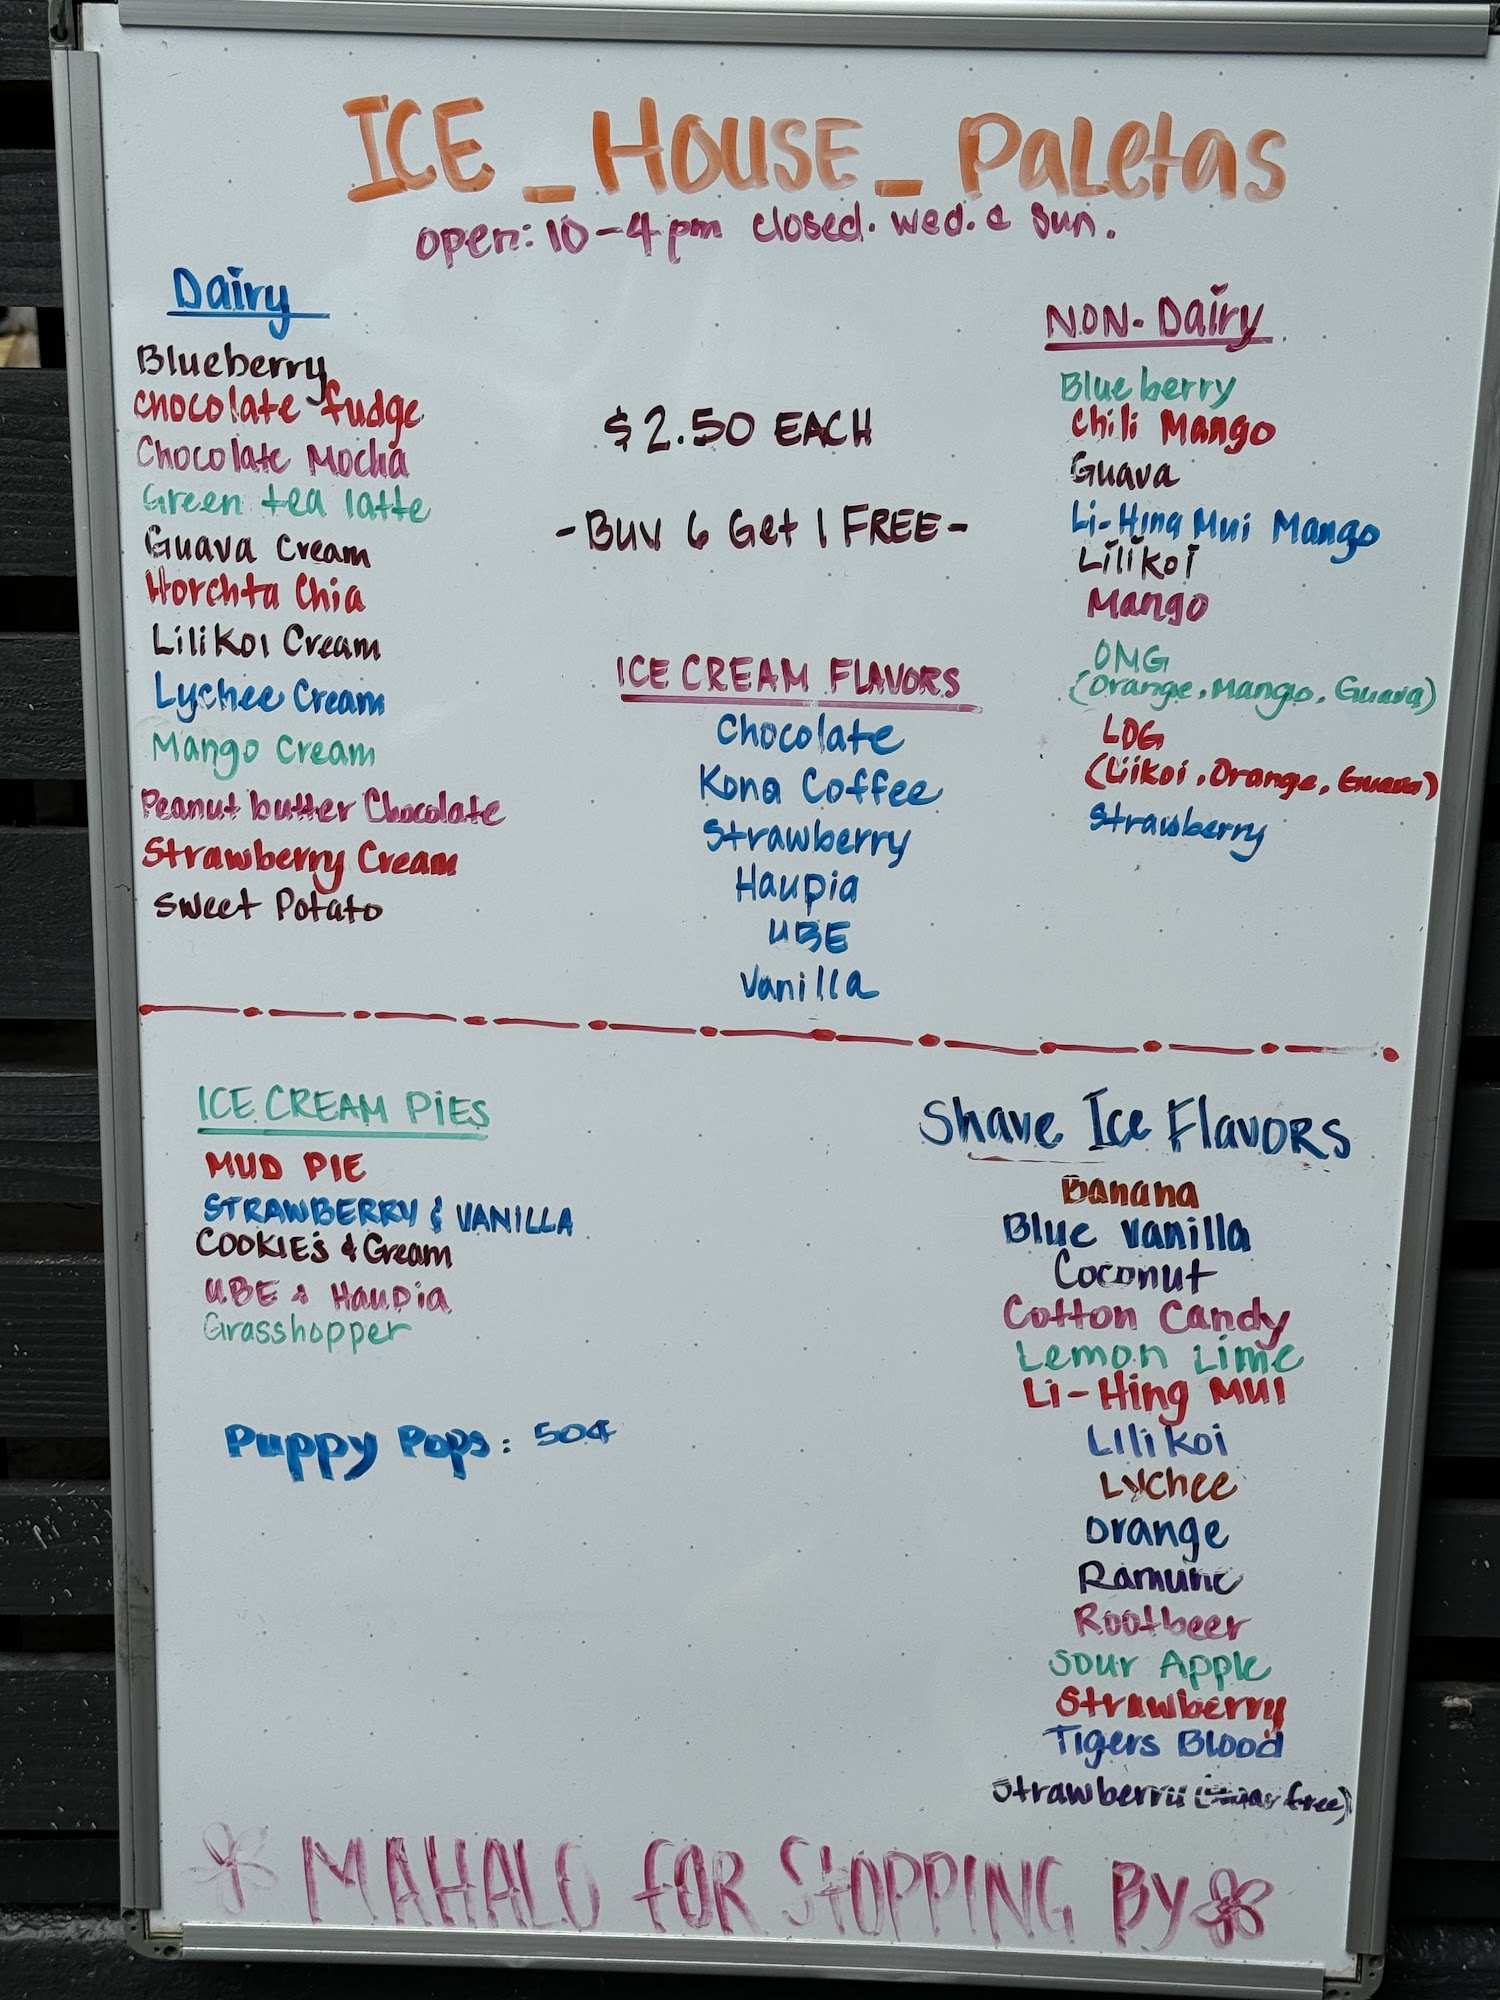 ICE_HOUSE_Paletas
open: 10-4pm closed. wed. & Sun.
Dairy
Blueberry
Chocolate fudge
Chocolate Mocha
Green tea latte
Guava Cream
Horchta Chia
Lilikoi Cream
Lychee Cream
Mango Cream
Peanut butter Chocolate
Strawberry Cream
Sweet Potato
$2.50 EACH
-Buy 6 Get 1 FREE-
ICE CREAM FLAVORS
Chocolate
Kona Coffee
Strawberry
Haupia
UBE
Vanilla
NON-Dairy
Blueberry
Chili Mango
Guava
Li-Hing Mui Mango
Lilikoi
Mango
OMG
(Orange, Mango, Guava)
LOG
(Liikoi, Orange, Guava)
Strawberry
ICE CREAM PIES
MUD PIE
STRAWBERRY & VANILLA
COOKIE'S & Cream
UBE & Haupia
Grasshopper
Puppy Pops: 50¢
Shave Ice Flavors
Banana
Blue Vanilla
Coconut
Cotton Candy
Lemon Lime
Li-Hing MUI
Lilikoi
Lychee
Orange
Ramune
Rootbeer
Sour Apple
Strawberry
Tigers Blood
Strawberry (Sugar free)
MAHALO FOR STOPPING BY